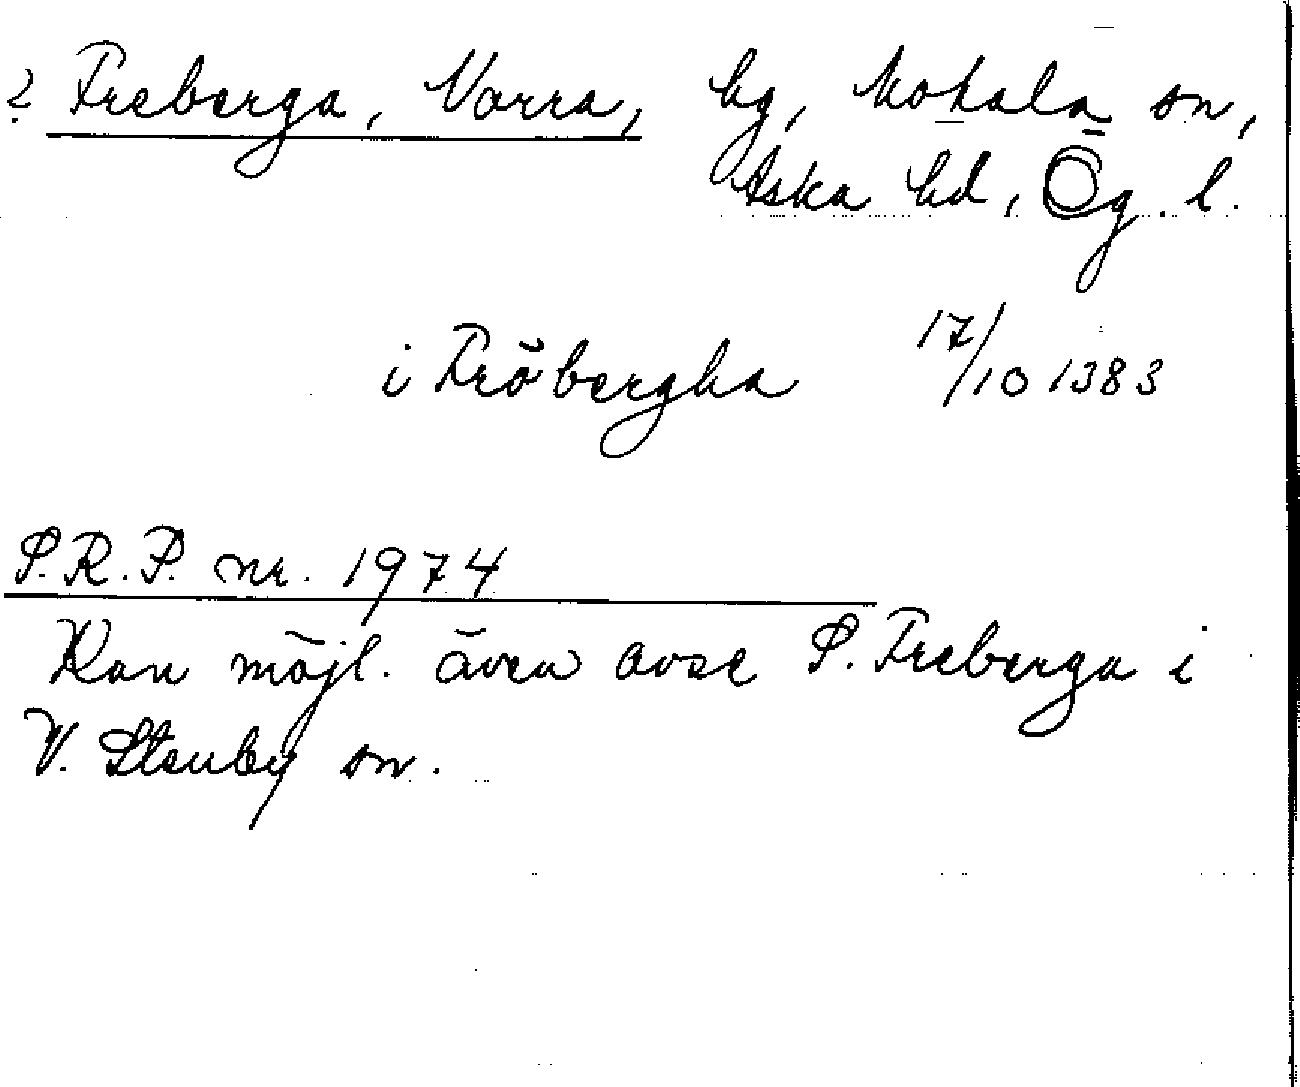 ? Freberga, Norra, hg, Motala sn,
Aska hd, Ög. l.
i Fröbergha 17/10 1383
S.R.P. nr. 1974
Kan möjl. även avse S. Freberga i
V. Stenby sn.